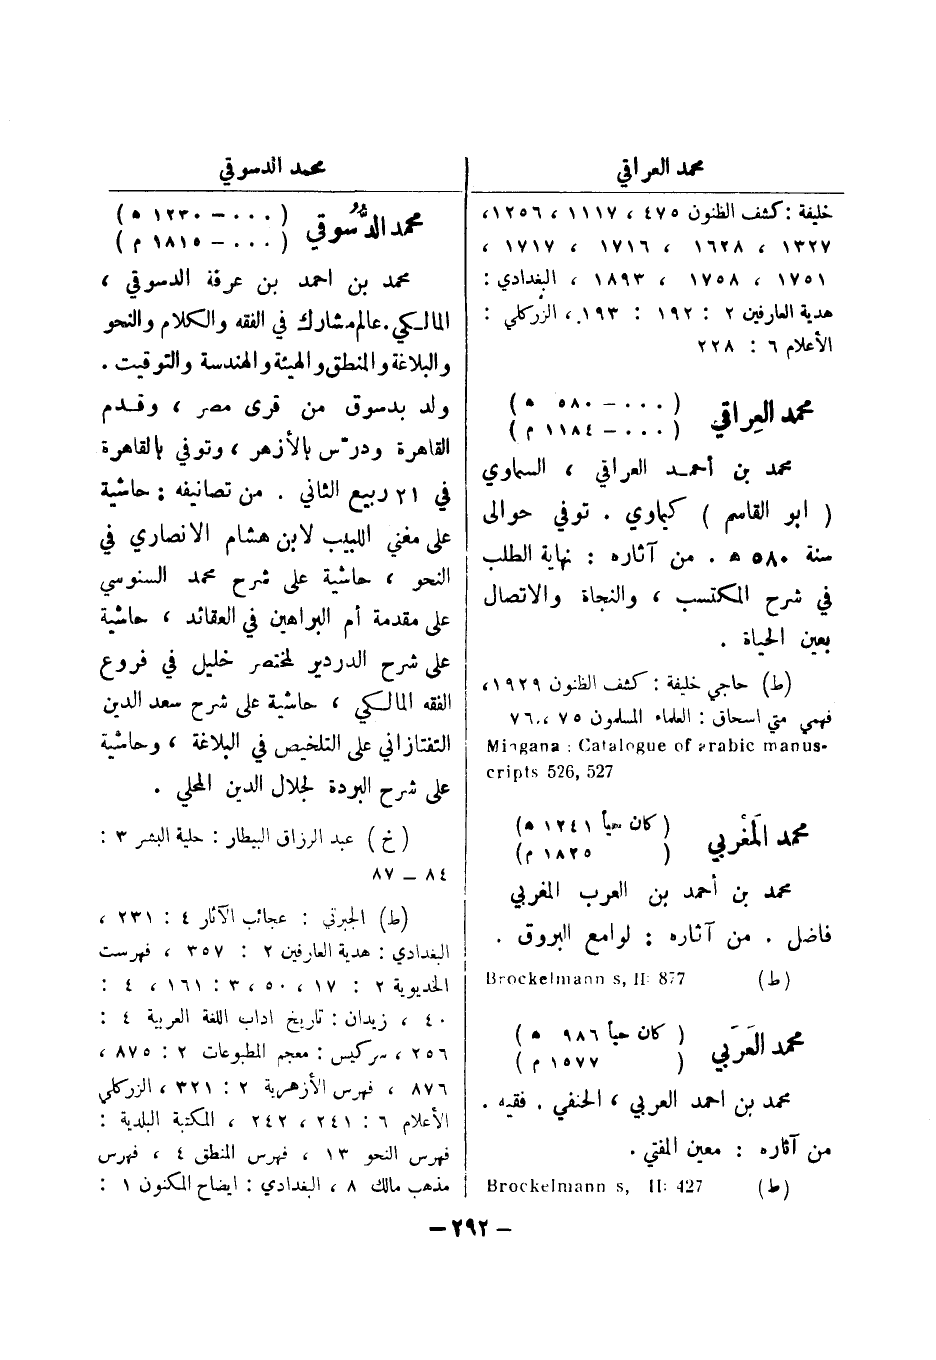 محمد العراقي
خليفة : كشف الظنون ٤٧٥ ، ١١١٧ ، ١٢٥٦ ،
١٣٢٧ ، ١٦٢٨ ، ١٧١٦ ، ١٧١٧ ،
١٧٥١ ، ١٧٥٨ ، ١٨٩٣ ، البغدادي :
هدية العارفين ٢ : ١٩٢ : ١٩٣ ، الزركلي :
الأعلام ٦ : ٢٢٨
محمد العِراقي ( ٠٠٠ – ٥٨٠ ه )
( ٠٠٠ – ١١٨٤ م )
محمد بن أحمد العراقي ، السماوي
( ابو القاسم ) كيماوي . توفي حوالى
سنة ٥٨٠ ه . من آثاره : نهاية الطلب
في شرح المكتسب ، والنجاة والاتصال
بعين الحياة .
(ط) حاجي خليفة : كشف الظنون ١٩٢٩ ،
فهمي متي اسحاق : العلماء المسلمون ٧٥ ، ٧٦ ،
Mingana : Catalogue of arabic manus-
cripts 526, 527
محمد المَغْربي ( كان حياً ١٢٤١ ه )
( ١٨٢٥ م )
محمد بن أحمد بن العرب المغربي
فاضل . من آثاره : لوامع البروق .
(ط) Brockelmann s, II: 877
محمد العَرَبي ( كان حياً ٩٨٦ ه )
( ١٥٧٧ م )
محمد بن احمد العربي ، الحنفي . فقيه .
من آثاره : معين المفتي .
(ط) Brockelmann s, II: 427
محمد الدسوقي
محمد الدُّسُوقي ( ٠٠٠ – ١٢٣٠ ه )
( ٠٠٠ – ١٨١٥ م )
محمد بن احمد بن عرفة الدسوقي ،
المالكي . عالم مشارك في الفقه والكلام والنحو
والبلاغة والمنطق والهيئة والهندسة والتوقيت .
ولد بدسوق من قرى مصر ، وقدم
القاهرة ودرّس بالأزهر ، وتوفي بالقاهرة
في ٢١ ربيع الثاني . من تصانيفه : حاشية
على مغني اللبيب لابن هشام الانصاري في
النحو ، حاشية على شرح محمد السنوسي
على مقدمة أم البراهين في العقائد ، حاشية
على شرح الدردير لمختصر خليل في فروع
الفقه المالكي ، حاشية على شرح سعد الدين
التفتازاني على التلخيص في البلاغة ، وحاشية
على شرح البردة لجلال الدين المحلي .
(خ) عبد الرزاق البيطار : حلية البشر ٣ :
٨٤ – ٨٧
(ط) الجبرتي : عجائب الآثار ٤ : ٢٣١ ،
البغدادي : هدية العارفين ٢ : ٣٥٧ ، فهرست
الخديوية ٢ : ١٧ ، ٥٠ ، ٣ : ١٦١ ، ٤ :
٤٠ ، زيدان : تاريخ اداب اللغة العربية ٤ :
٢٥٦ ، سركيس : معجم المطبوعات ٢ : ٨٧٥ ،
٨٧٦ ، فهرس الأزهرية ٢ : ٣٢١ ، الزركلي
الأعلام ٦ : ٢٤١ ، ٢٤٢ ، المكتبة البلدية :
فهرس النحو ١٣ ، فهرس المنطق ٤ ، فهرس
مذهب مالك ٨ ، البغدادي : ايضاح المكنون ١ :
– ٢٩٢ –